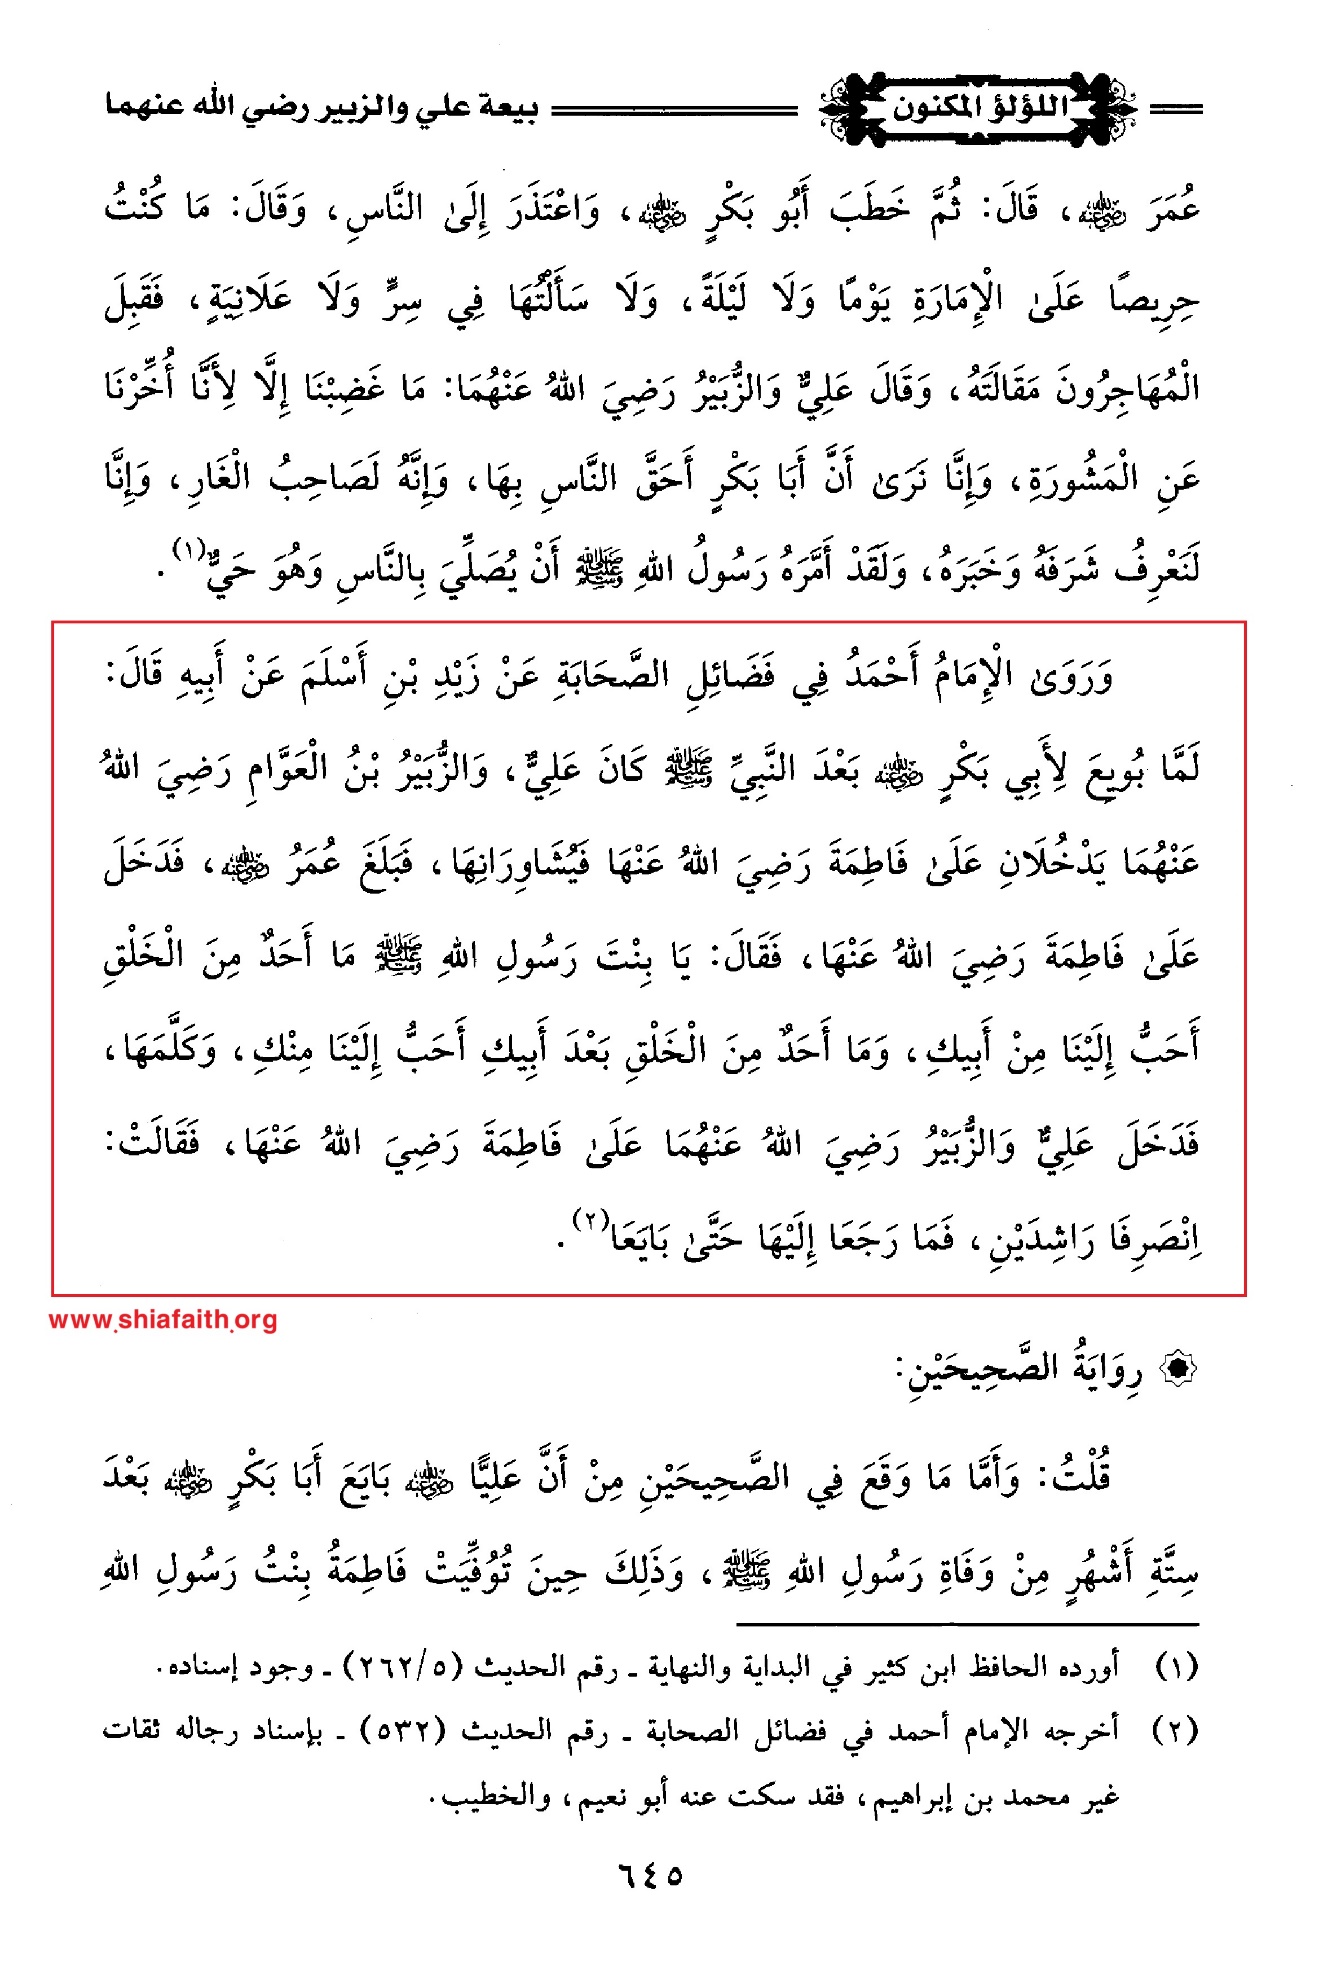 اللؤلؤ المكنون بيعة علي والزبير رضي الله عنهما
عُمَرَ ﵁، قَالَ: ثُمَّ خَطَبَ أَبُو بَكْرٍ ﵁، وَاعْتَذَرَ إِلَىٰ النَّاسِ، وَقَالَ: مَا كُنْتُ
حِرِيصًا عَلَىٰ الْإِمَارَةِ يَوْمًا وَلَا لَيْلَةً، وَلَا سَأَلْتُهَا فِي سِرٍّ وَلَا عَلَانِيَةٍ، فَقَبِلَ
الْمُهَاجِرُونَ مَقَالَتَهُ، وَقَالَ عَلِيٌّ وَالزُّبَيْرُ رَضِيَ اللهُ عَنْهُمَا: مَا غَضِبْنَا إِلَّا لِأَنَّا أُخِّرْنَا
عَنِ الْمَشُورَةِ، وَإِنَّا نَرَىٰ أَنَّ أَبَا بَكْرٍ أَحَقَّ النَّاسِ بِهَا، وَإِنَّهُ لَصَاحِبُ الْغَارِ، وَإِنَّا
لَنَعْرِفُ شَرَفَهُ وَخَبَرَهُ، وَلَقَدْ أَمَّرَهُ رَسُولُ اللهِ ﷺ أَنْ يُصَلِّيَ بِالنَّاسِ وَهُوَ حَيٌّ(١).
وَرَوَىٰ الْإِمَامُ أَحْمَدُ فِي فَضَائِلِ الصَّحَابَةِ عَنْ زَيْدِ بْنِ أَسْلَمَ عَنْ أَبِيهِ قَالَ:
لَمَّا بُويِعَ لِأَبِي بَكْرٍ ﵁ بَعْدَ النَّبِيِّ ﷺ كَانَ عَلِيٌّ، وَالزُّبَيْرُ بْنُ الْعَوَّامِ رَضِيَ اللهُ
عَنْهُمَا يَدْخُلَانِ عَلَىٰ فَاطِمَةَ رَضِيَ اللهُ عَنْهَا فَيُشَاوِرَانِهَا، فَبَلَغَ عُمَرُ ﵁، فَدَخَلَ
عَلَىٰ فَاطِمَةَ رَضِيَ اللهُ عَنْهَا، فَقَالَ: يَا بِنْتَ رَسُولِ اللهِ ﷺ مَا أَحَدٌ مِنَ الْخَلْقِ
أَحَبُّ إِلَيْنَا مِنْ أَبِيكِ، وَمَا أَحَدٌ مِنَ الْخَلْقِ بَعْدَ أَبِيكِ أَحَبُّ إِلَيْنَا مِنْكِ، وَكَلَّمَهَا،
فَدَخَلَ عَلِيٌّ وَالزُّبَيْرُ رَضِيَ اللهُ عَنْهُمَا عَلَىٰ فَاطِمَةَ رَضِيَ اللهُ عَنْهَا، فَقَالَتْ:
اِنْصَرِفَا رَاشِدَيْنِ، فَمَا رَجَعَا إِلَيْهَا حَتَّىٰ بَايَعَا(٢).
www.shiafaith.org
رِوَايَةُ الصَّحِيحَيْنِ:
قُلْتُ: وَأَمَّا مَا وَقَعَ فِي الصَّحِيحَيْنِ مِنْ أَنَّ عَلِيًّا ﵁ بَايَعَ أَبَا بَكْرٍ ﵁ بَعْدَ
سِتَّةِ أَشْهُرٍ مِنْ وَفَاةِ رَسُولِ اللهِ ﷺ، وَذَلِكَ حِينَ تُوُفِّيَتْ فَاطِمَةُ بِنْتُ رَسُولِ اللهِ
(١) أورده الحافظ ابن كثير في البداية والنهاية ـ رقم الحديث (٢٦٢/٥) ـ وجود إسناده.
(٢) أخرجه الإمام أحمد في فضائل الصحابة ـ رقم الحديث (٥٣٢) ـ بإسناد رجاله ثقات
غير محمد بن إبراهيم، فقد سكت عنه أبو نعيم، والخطيب.
٦٤٥